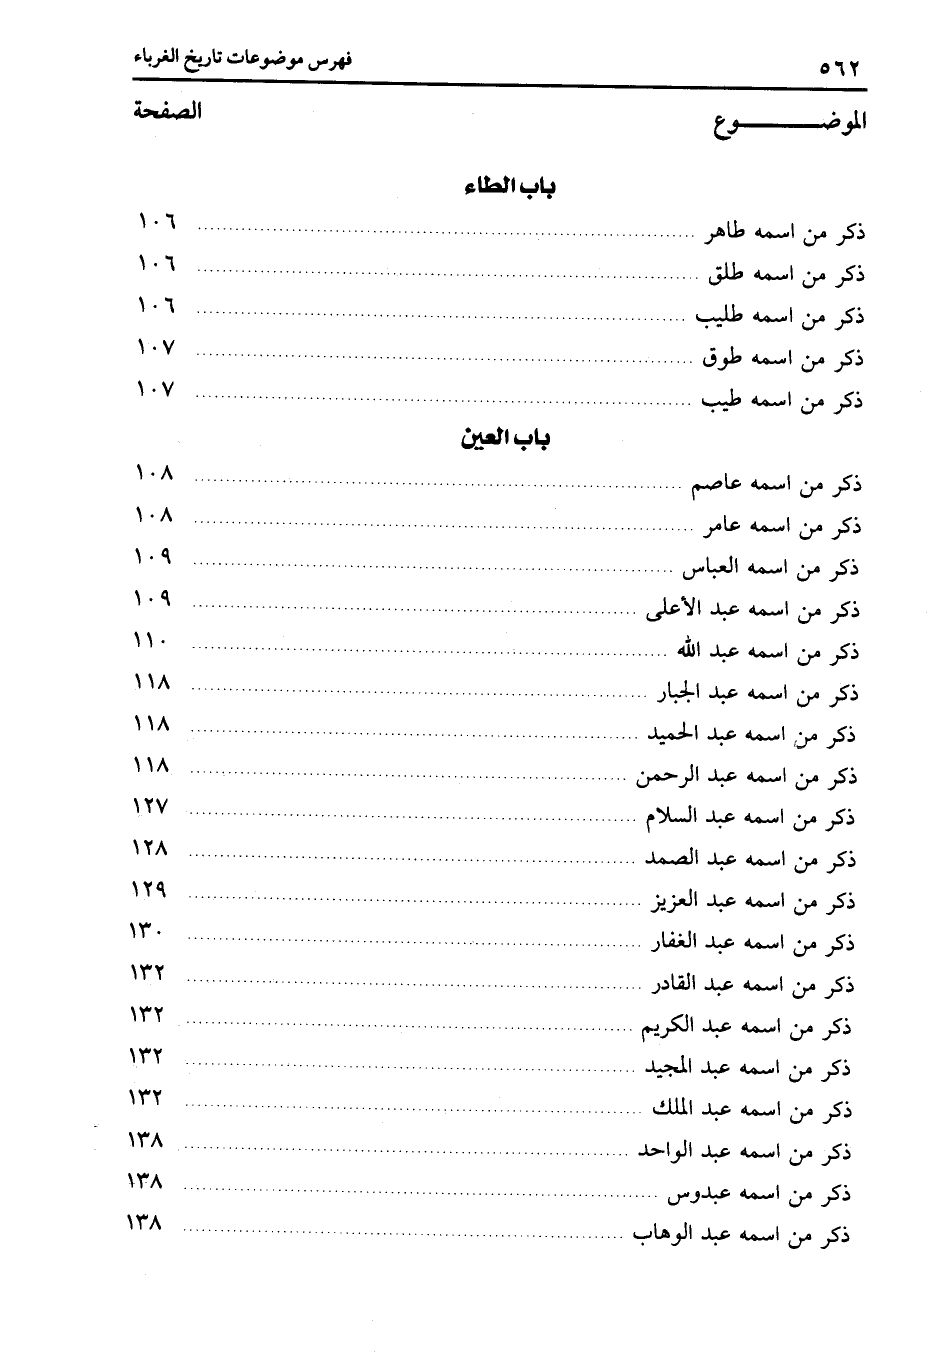 ٥٦٢ فهرس موضوعات تاريخ الغرباء
الموضـــــــــوع الصفحة
باب الطاء
ذكر من اسمه طاهر ........ ١٠٦
ذكر من اسمه طلق ........ ١٠٦
ذكر من اسمه طليب ........ ١٠٦
ذكر من اسمه طوق ........ ١٠٧
ذكر من اسمه طيب ........ ١٠٧
باب العين
ذكر من اسمه عاصم ........ ١٠٨
ذكر من اسمه عامر ........ ١٠٨
ذكر من اسمه العباس ........ ١٠٩
ذكر من اسمه عبد الأعلى ........ ١٠٩
ذكر من اسمه عبد الله ........ ١١٠
ذكر من اسمه عبد الجبار ........ ١١٨
ذكر من اسمه عبد الحميد ........ ١١٨
ذكر من اسمه عبد الرحمن ........ ١١٨
ذكر من اسمه عبد السلام ........ ١٢٧
ذكر من اسمه عبد الصمد ........ ١٢٨
ذكر من اسمه عبد العزيز ........ ١٢٩
ذكر من اسمه عبد الغفار ........ ١٣٠
ذكر من اسمه عبد القادر ........ ١٣٢
ذكر من اسمه عبد الكريم ........ ١٣٢
ذكر من اسمه عبد المجيد ........ ١٣٢
ذكر من اسمه عبد الملك ........ ١٣٢
ذكر من اسمه عبد الواحد ........ ١٣٨
ذكر من اسمه عبدوس ........ ١٣٨
ذكر من اسمه عبد الوهاب ........ ١٣٨